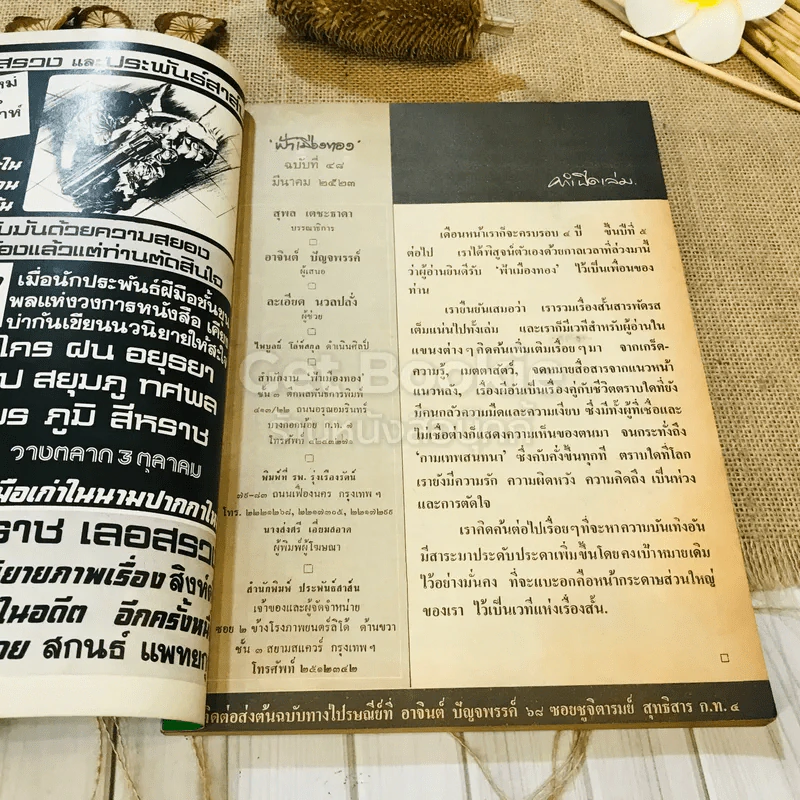 สรวง และประพันธ์สาส์น
ใหม่
ด้วยความสยอง
แล้วแต่ท่านตัดสินใจ
เมื่อนักประพันธ์ฝีมือชั้นขุน
พลแห่งวงการหนังสือ
เขียนนวนิยายให้
ใคร ฝน อยุธยา
สยุมภู ทศพล
ภูมิ สีหราช
วางตลาด 3 ตุลาคม
มือเก่าในนามปากกา
ราช เลอสรวง
ยายภาพเรื่อง สิงห์
ในอดีต อีกครั้ง
สกนธ์ แพทยกุ
'ฟ้าเมืองทอง'
ฉบับที่ ๔๘
มีนาคม ๒๕๒๓
สุพล เตชะธาดา
บรรณาธิการ
อาจินต์ ปัญจพรรค์
ผู้เสนอ
ละเอียด นวลปลั่ง
ผู้ช่วย
ไพบูลย์ ดำเนินศิลป์
สำนักงาน 'ฟ้าเมืองทอง'
ชั้น ๓ ตึกพลพันธ์การพิมพ์
๔๑๓/๒๒ ถนนอรุณอมรินทร์
บางกอกน้อย ก.ท. ๗
พิมพ์ที่ รพ. รุ่งเรืองรัตน์
๗๙-๘๓ ถนนเฟื่องนคร กรุงเทพ ฯ
โทร. ๒๒๒๑๒๖๘, ๒๒๑๗๓๐๕, ๒๒๑๗๒๙๙
นางสงศรี เอี่ยมสอาด
ผู้พิมพ์ผู้โฆษณา
สำนักพิมพ์ ประพันธ์สาส์น
เจ้าของและผู้จัดจำหน่าย
ซอย ๒ ข้างโรงภาพยนตร์ลิโด้ ด้านขวา
ชั้น ๓ สยามสแควร์ กรุงเทพ ฯ
โทรศัพท์ ๒๕๑๒๓๔๒
คำเปิดเล่ม
เดือนหน้าเราก็จะครบรอบ ๔ ปี ขึ้นปีที่ ๕
ต่อไป เราได้พิสูจน์ตัวเองด้วยกาลเวลาที่ล่วงมานี้
ว่าผู้อ่านยินดีรับ 'ฟ้าเมืองทอง' ไว้เป็นเพื่อนของ
ท่าน
เรายืนยันเสมอว่า เรารวมเรื่องสั้นสารพัดรส
เต็มแน่นไปทั้งเล่ม และเราก็มีเวทีสำหรับผู้อ่านใน
แขนงต่าง ๆ คิดค้นเพิ่มเติมเรื่อย ๆ มา จากเกร็ด-
ความรู้, เมตตาสัตว์, จดหมายสื่อสารจากแนวหน้า
แนวหลัง, เรื่องผีอันเป็นเรื่องคู่กับชีวิตตราบใดที่ยัง
มีคนกลัวความมืดและความเงียบ ซึ่งมีทั้งผู้ที่เชื่อและ
ไม่เชื่อต่างก็แสดงความเห็นของตนมา จนกระทั่งถึง
'กามเทพสนทนา' ซึ่งคับคั่งขึ้นทุกที ตราบใดที่โลก
เรายังมีความรัก ความผิดหวัง ความคิดถึง เป็นห่วง
และการตัดใจ
เราคิดค้นต่อไปเรื่อยๆ ที่จะหาความบันเทิงอัน
มีสาระมาประดับประดาเพิ่มขึ้นโดยคงเป้าหมายเดิม
ไว้อย่างมั่นคง ที่จะแบะอกคือหน้ากระดาษส่วนใหญ่
ของเรา ไว้เป็นเวทีแห่งเรื่องสั้น.
ติดต่อส่งต้นฉบับทางไปรษณีย์ที่ อาจินต์ ปัญจพรรค์ ๖๘ ซอยชูจิตารมย์ สุทธิสาร ก.ท. ๔